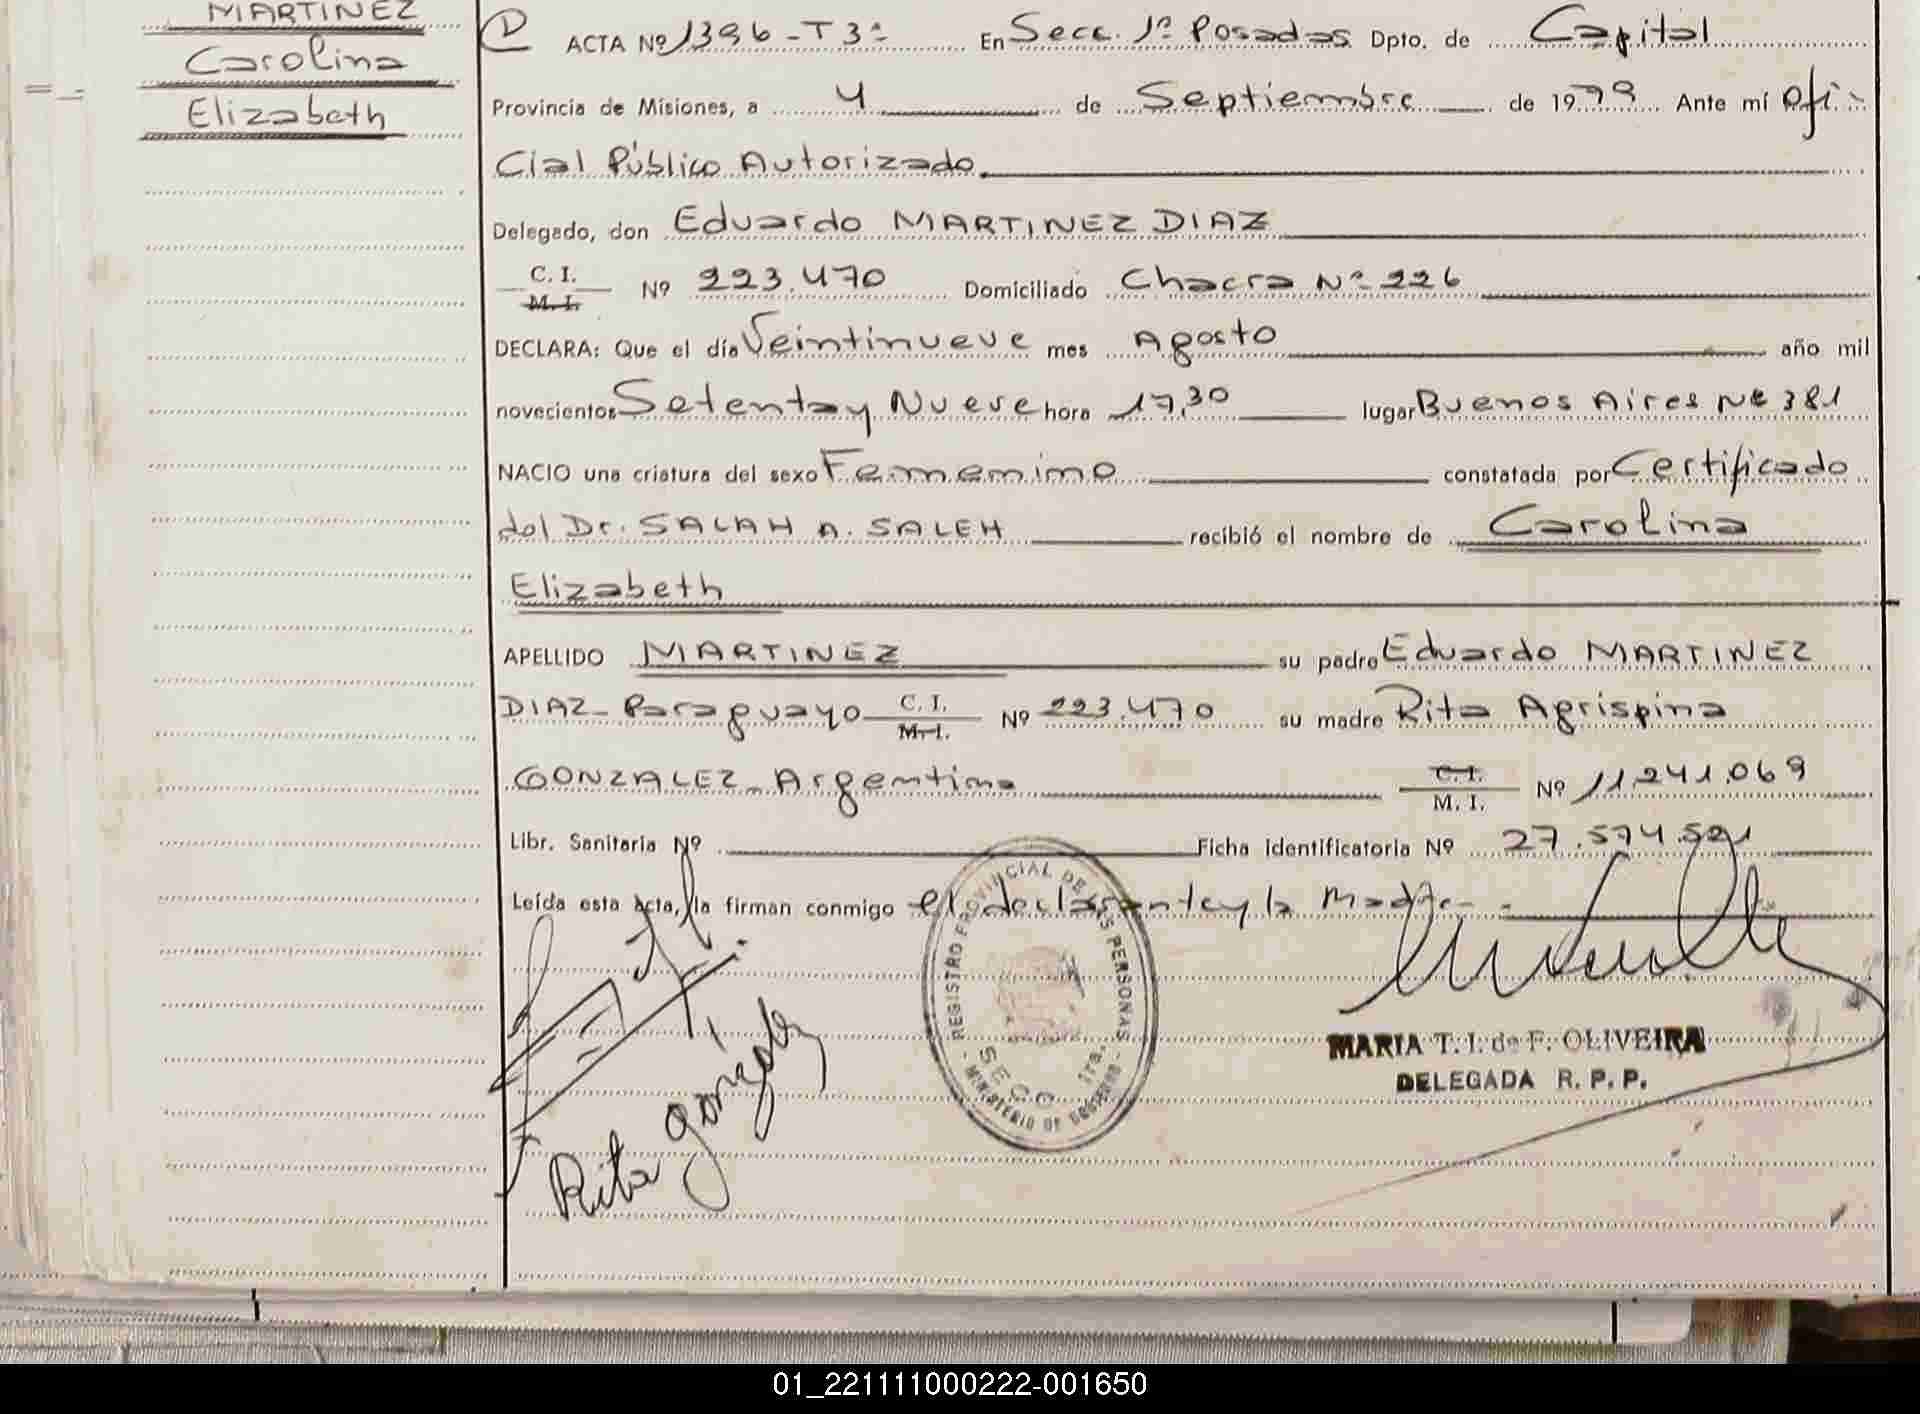 MARTINEZ
Carolina
Elizabeth
ACTA Nº 1396-T3º En Secc. 1º Posadas Dpto. de Capital
Provincia de Misiones, a 4 de Septiembre de 1979 Ante mí Ofi-
cial Público Autorizado
Delegado, don Eduardo MARTINEZ DIAZ
C. I. M. I. Nº 223.470 Domiciliado Chacra Nº 226
DECLARA: Que el día Veintinueve mes Agosto año mil
novecientos Setenta y Nueve hora 17,30 lugar Buenos Aires Nº 381
NACIO una criatura del sexo Femenino constatada por Certificado
del Dr. SALAH A. SALEH recibió el nombre de Carolina
Elizabeth
APELLIDO MARTINEZ su padre Eduardo MARTINEZ
DIAZ - Paraguayo C. I. M. I. Nº 223.470 su madre Rita Agrispina
GONZALEZ - Argentina C. I. M. I. Nº 11.241.069
Libr. Sanitaria Nº Ficha identificatoria Nº 27.574.521
Leída esta acta, la firman conmigo el declarante y la Madre
REGISTRO PROVINCIAL DE LAS PERSONAS
SECC. 1ra.
- MINISTERIO DE GOBIERNO -
MARIA T. I. de F. OLIVEIRA
DELEGADA R. P. P.
Rita González
01_221111000222-001650